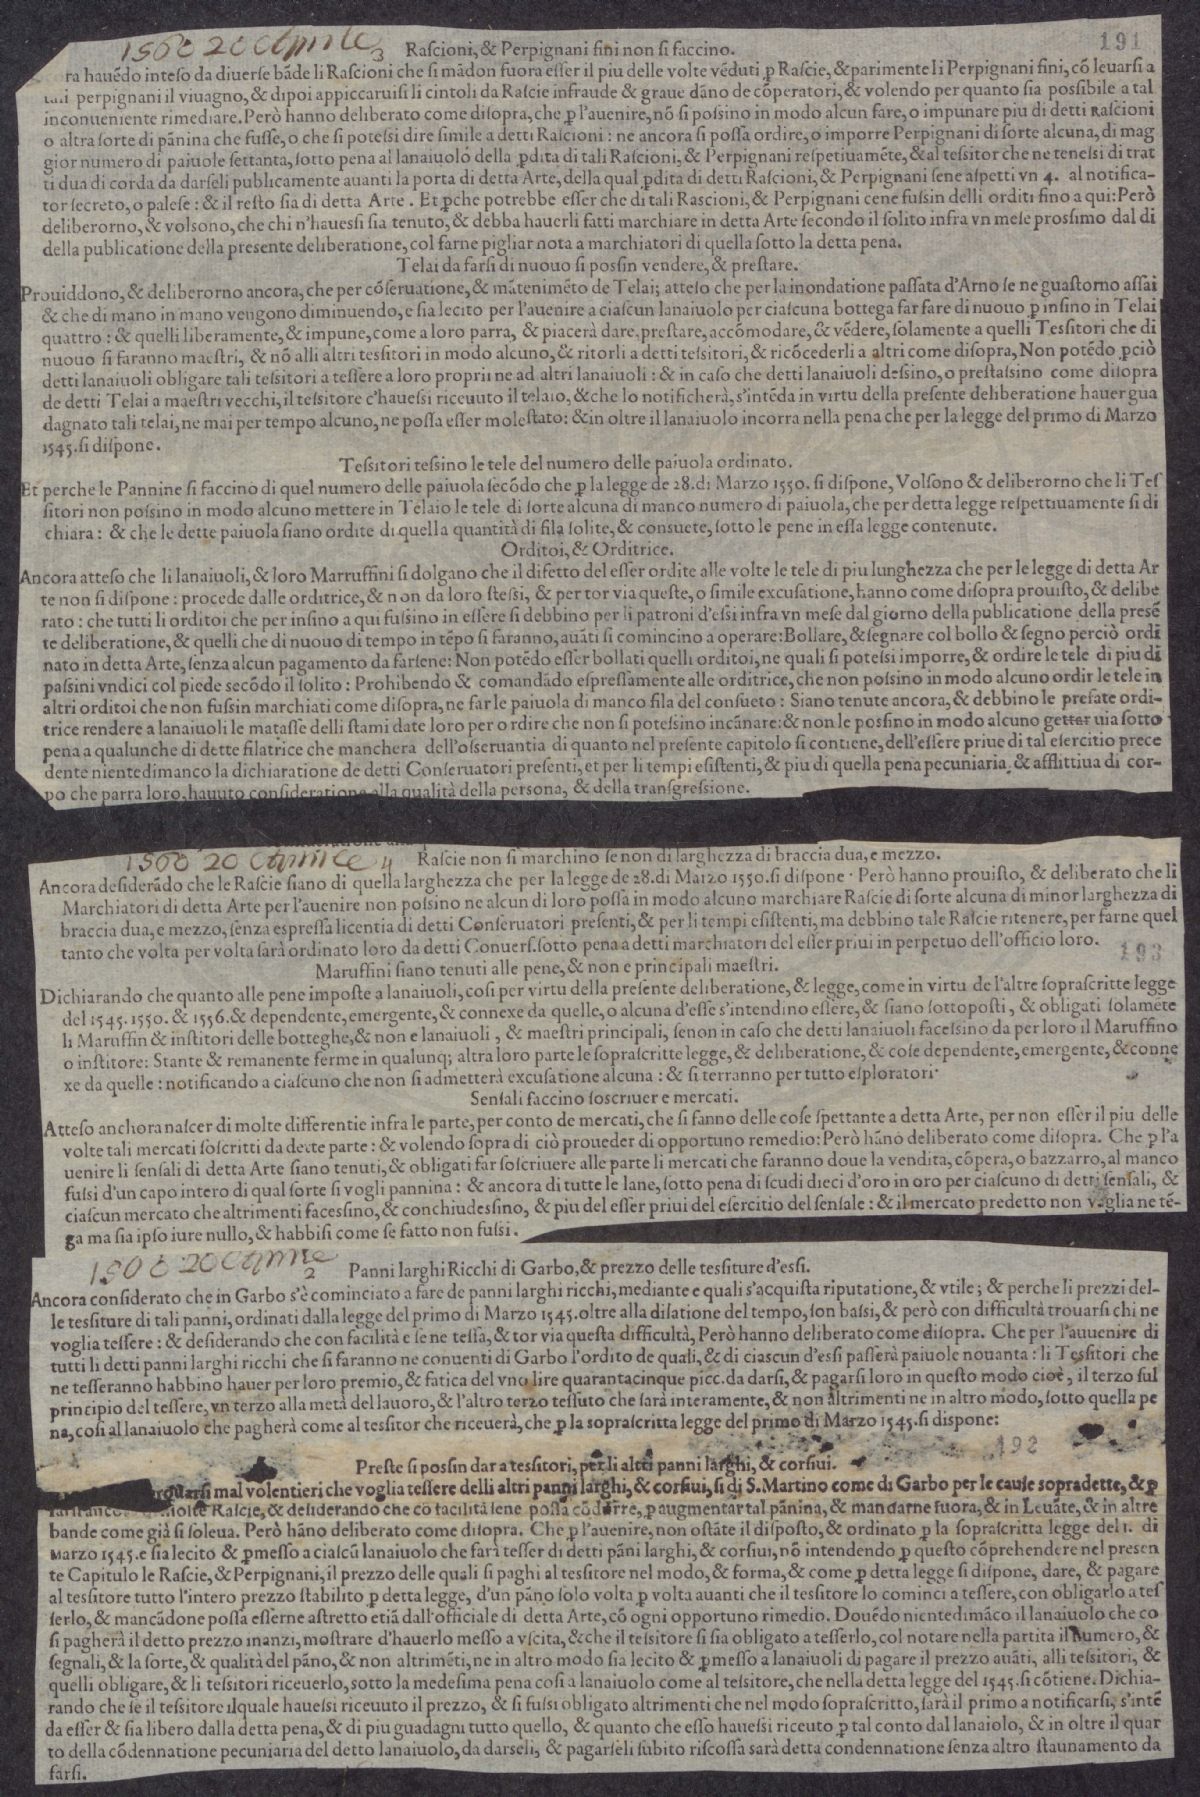 1560 20 Aprile 3 Raſcioni, & Perpignani fini non ſi faccino. 191
ra hauẽdo inteſo da diuerſe bãde li Raſcioni che ſi mãdon fuora eſſer il piu delle volte vẽduti ꝑ Raſcie, & parimente li Perpignani fini, cõ leuarſi a
tali perpignani il viuagno, & dipoi appiccaruiſi li cintoli da Raſcie infraude & graue dãno de cõperatori, & volendo per quanto ſia poſſibile a tal
inconueniente rimediare. Però hanno deliberato come diſopra, che ꝑ l'auenire, nõ ſi poſſino in modo alcun fare, o impunare piu di detti Raſcioni
o altra ſorte di pãnina che fuſſe, o che ſi poteſſi dire ſimile a detti Raſcioni : ne ancora ſi poſſa ordire, o imporre Perpignani di ſorte alcuna, di mag
gior numero di paiuole ſettanta, ſotto pena al lanaiuolo della ꝑdita di tali Raſcioni, & Perpignani reſpetiuamẽte, & al teſſitor che ne teneſſi di trat
ti dua di corda da darſeli publicamente auanti la porta di detta Arte, della qual ꝑdita di detti Raſcioni, & Perpignani ſene aſpetti vn 4. al notifica-
tor ſecreto, o paleſe : & il reſto ſia di detta Arte . Et ꝑche potrebbe eſſer che di tali Raſcioni, & Perpignani cene fuſſin delli orditi fino a qui: Però
deliberorno, & volſono, che chi n'haueſſi ſia tenuto, & debba hauerli fatti marchiare in detta Arte ſecondo il ſolito infra vn meſe proſſimo dal di
della publicatione della preſente deliberatione, col farne pigliar nota a marchiatori di quella ſotto la detta pena.
Telai da farſi di nuouo ſi poſſin vendere, & preſtare.
Prouiddono, & deliberorno ancora, che per cõſeruatione, & mãtenimẽto de Telai; atteſo che per la inondatione paſſata d'Arno ſe ne guaſtorno aſſai
& che di mano in mano vengono diminuendo, e ſia lecito per l'auenire a ciaſcun lanaiuolo per ciaſcuna bottega far fare di nuouo ꝑ inſino in Telai
quattro : & quelli liberamente, & impune, come a loro parra, & piacerà dare, preſtare, accõmodare, & vẽdere, ſolamente a quelli Teſſitori che di
nuouo ſi faranno maeſtri, & nõ alli altri teſſitori in modo alcuno, & ritorli a detti teſſitori, & ricõcederli a altri come diſopra, Non potẽdo ꝑciò
detti lanaiuoli obligare tali teſſitori a teſſere a loro proprii ne ad altri lanaiuoli : & in caſo che detti lanaiuoli deſſino, o preſtaſſino come diſopra
de detti Telai a maeſtri vecchi, il teſſitore c'haueſſi riceuuto il telaio, & che lo notificherà, s'intẽda in virtu della preſente deliberatione hauer gua
dagnato tali telai, ne mai per tempo alcuno, ne poſſa eſſer moleſtato: & in oltre il lanaiuolo incorra nella pena che per la legge del primo di Marzo
1545. ſi diſpone.
Teſſitori teſſino le tele del numero delle paiuola ordinato.
Et perche le Pannine ſi faccino di quel numero delle paiuola ſecõdo che ꝑ la legge de 28. di Marzo 1550. ſi diſpone, Volſono & deliberorno che li Teſ
ſitori non poſſino in modo alcuno mettere in Telaio le tele di ſorte alcuna di manco numero di paiuola, che per detta legge reſpettiuamente ſi di
chiara : & che le dette paiuola ſiano ordite di quella quantità di fila ſolite, & conſuete, ſotto le pene in eſſa legge contenute.
Orditoi, & Orditrice.
Ancora atteſo che li lanaiuoli, & loro Marruffini ſi dolgano che il difetto del eſſer ordite alle volte le tele di piu lunghezza che per le legge di detta Ar
te non ſi diſpone : procede dalle orditrice, & non da loro ſteſſi, & per tor via queſte, o ſimile excuſatione, hanno come diſopra prouiſto, & delibe
rato : che tutti li orditoi che per inſino a qui fuſſino in eſſere ſi debbino per li patroni d'eſſi infra vn meſe dal giorno della publicatione della preſẽ
te deliberatione, & quelli che di nuouo di tempo in tẽpo ſi faranno, auãti ſi comincino a operare: Bollare, & ſegnare col bollo & ſegno perciò ordĩ
nato in detta Arte, ſenza alcun pagamento da farſene: Non potẽdo eſſer bollati quelli orditoi, ne quali ſi poteſſi imporre, & ordire le tele di piu di
paſſini vndici col piede ſecõdo il ſolito : Prohibendo & comandãdo eſpreſſamente alle orditrice, che non poſſino in modo alcuno ordir le tele in
altri orditoi che non fuſſin marchiati come diſopra, ne far le paiuola di manco fila del conſueto : Siano tenute ancora, & debbino le prefate ordi-
trice rendere a lanaiuoli le mataſſe delli ſtami date loro per ordire che non ſi poteſſino incãnare: & non le poſſino in modo alcuno gettar uia ſotto
pena a qualunche di dette filatrice che manchera dell'oſeruantia di quanto nel preſente capitolo ſi contiene, dell'eſſere priue di tal eſercitio prece
dente nientedimanco la dichiaratione de detti Conſeruatori preſenti, et per li tempi eſiſtenti, & piu di quella pena pecuniaria & afflittiua di cor-
po che parra loro, hauuto conſideratione alla qualità della perſona, & della tranſgreſſione.
1560 20 Aprile 4 Raſcie non ſi marchino ſe non di larghezza di braccia dua, e mezzo.
Ancora deſiderãdo che le Raſcie ſiano di quella larghezza che per la legge de 28. di Marzo 1550. ſi diſpone · Però hanno prouiſto, & deliberato che li
Marchiatori di detta Arte per l'auenire non poſſino ne alcun di loro poſſa in modo alcuno marchiare Raſcie di ſorte alcuna di minor larghezza di
braccia dua, e mezzo, ſenza eſpreſſa licentia di detti Conſeruatori preſenti, & per li tempi eſiſtenti, ma debbino tale Raſcie ritenere, per farne quel
tanto che volta per volta ſarà ordinato loro da detti Conuerſ. ſotto pena a detti marchiatori del eſſer priui in perpetuo dell'officio loro. 193
Maruffini ſiano tenuti alle pene, & non e principali maeſtri.
Dichiarando che quanto alle pene impoſte a lanaiuoli, coſi per virtu della preſente deliberatione, & legge, come in virtu de l'altre ſopraſcritte legge
del 1545. 1550. & 1556. & dependente, emergente, & connexa da quelle, o alcuna d'eſſe s'intendino eſſere, & ſiano ſottopoſti , & obligati ſolamẽte
li Maruffin & inſtitori delle botteghe, & non e lanaiuoli , & maeſtri principali, ſenon in caſo che detti lanaiuoli faceſſino da per loro il Maruffino
o inſtitore: Stante & remanente ferme in qualunq; altra loro parte le ſopraſcritte legge, & deliberatione, & coſe dependente, emergente, & conne
xe da quelle : notificando a ciaſcuno che non ſi admetterà excuſatione alcuna : & ſi terranno per tutto eſploratori·
Senſali faccino ſoscriuer e mercati.
Atteſo anchora naſcer di molte differentie infra le parte, per conto de mercati, che ſi fanno delle coſe ſpettante a detta Arte, per non eſſer il piu delle
volte tali mercati ſoſcritti da dette parte : & volendo ſopra di ciò proueder di opportuno remedio: Però hãno deliberato come diſopra. Che ꝑ l'a
uenire li ſenſali di detta Arte ſiano tenuti, & obligati far ſoſcriuere alle parte li mercati che faranno doue la vendita, cõpera, o bazzarro, al manco
fuſſi d'un capo intero di qual ſorte ſi vogli pannina : & ancora di tutte le lane, ſotto pena di ſcudi dieci d'oro in oro per ciaſcuno di detti ſenſali, &
ciaſcun mercato che altrimenti faceſſino, & conchiudeſſino, & piu del eſſer priui del eſercitio del ſenſale : & il mercato predetto non voglia ne tẽ-
ga ma ſia ipſo iure nullo, & habbiſi come ſe fatto non fuſſi .
1560 20 Aprile 2 Panni larghi Ricchi di Garbo, & prezzo delle teſſiture d'eſſi.
Ancora conſiderato che in Garbo s'è cominciato a fare de panni larghi ricchi, mediante e quali s'acquiſta riputatione, & vtile ; & perche li prezzi del-
le teſſiture di tali panni, ordinati dalla legge del primo di Marzo 1545. oltre alla dilatione del tempo, ſon baſſi, & però con difficultà trouarſi chi ne
voglia teſſere : & deſiderando che con facilità e ſe ne teſſa, & tor via queſta difficultà, Però hanno deliberato come diſopra. Che per l'auuenire di
tutti li detti panni larghi ricchi che ſi faranno ne conuenti di Garbo l'ordito de quali, & di ciaſcun d'eſſi paſſerà paiuole nouanta : li Teſſitori che
ne teſſeranno habbino hauer per loro premio, & fatica del vno lire quarantacinque picc. da darſi, & pagarſi loro in queſto modo cioè, il terzo ſul
principio del teſſere, vn terzo alla metà del lauoro, & l'altro terzo teſſuto che ſarà interamente, & non altrimenti ne in altro modo, ſotto quella pe
na, coſi al lanaiuolo che pagherà come al teſſitor che riceuerà, che ꝑ la ſopraſcritta legge del primo di Marzo 1545. ſi diſpone:
192
Preſte ſi poſſin dar a teſſitori, per li altri panni larghi, & corſiui.
mal volentieri che voglia teſſere delli altri panni larghi, & corſiui, ſi di S. Martino come di Garbo per le cauſe sopradette, & ꝑ
molte Raſcie, & deſiderando che cõ facilità ſene poſſa cõdurre, ꝑ augmentar tal pãnina, & mandarne fuora, & in Leuãte, & in altre
bande come già ſi ſoleua. Però hãno deliberato come diſopra. Che ꝑ l'auenire, non oſtãte il diſpoſto, & ordinato ꝑ la ſopraſcritta legge del 1. di
Marzo 1545. e ſia lecito & ꝑmeſſo a ciaſcũ lanaiuolo che farà teſſer di detti pãni larghi, & corſiui, nõ intendendo ꝑ queſto cõprehendere nel preſen
te Capitulo le Raſcie, & Perpignani, il prezzo delle quali ſi paghi al teſſitore nel modo, & forma, & come ꝑ detta legge ſi diſpone, dare, & pagare
al teſſitore tutto l'intero prezzo ſtabilito ꝑ detta legge, d'un pãno ſolo volta ꝑ volta auanti che il teſſitore lo cominci a teſſere, con obligarlo a teſ
ſerlo, & mancãdone poſſa eſſerne aſtretto etiã dall'officiale di detta Arte, cõ ogni opportuno rimedio. Douẽdo nientedimãco il lanaiuolo che co
ſi pagherà il detto prezzo inanzi, moſtrare d'hauerlo meſſo a vſcita, & che il teſſitore ſi ſia obligato a teſſerlo, col notare nella partita il numero, &
ſegnali, & la ſorte, & qualità del pãno, & non altrimẽti, ne in altro modo ſia lecito & ꝑmeſſo a lanaiuoli di pagare il prezzo auãti, alli teſſitori, &
quelli obligare, & li teſſitori riceuerlo, ſotto la medeſima pena coſi a lanaiuolo come al teſſitore, che nella detta legge del 1545. ſi cõtiene. Dichia-
rando che ſe il teſſitore ilquale haueſſi riceuuto il prezzo, & ſi fuſſi obligato altrimenti che nel modo ſopraſcritto, ſarà il primo a notificarſi, s'intẽ
da eſſer & ſia libero dalla detta pena, & di piu guadagni tutto quello, & quanto che eſſo haueſſi riceuto ꝑ tal conto dal lanaiolo, & in oltre il quar
to della cõdennatione pecuniaria del detto lanaiuolo, da darſeli, & pagarſeli ſubito riſcoſſa ſarà detta condennatione ſenza altro ſtaunamento da
farſi.